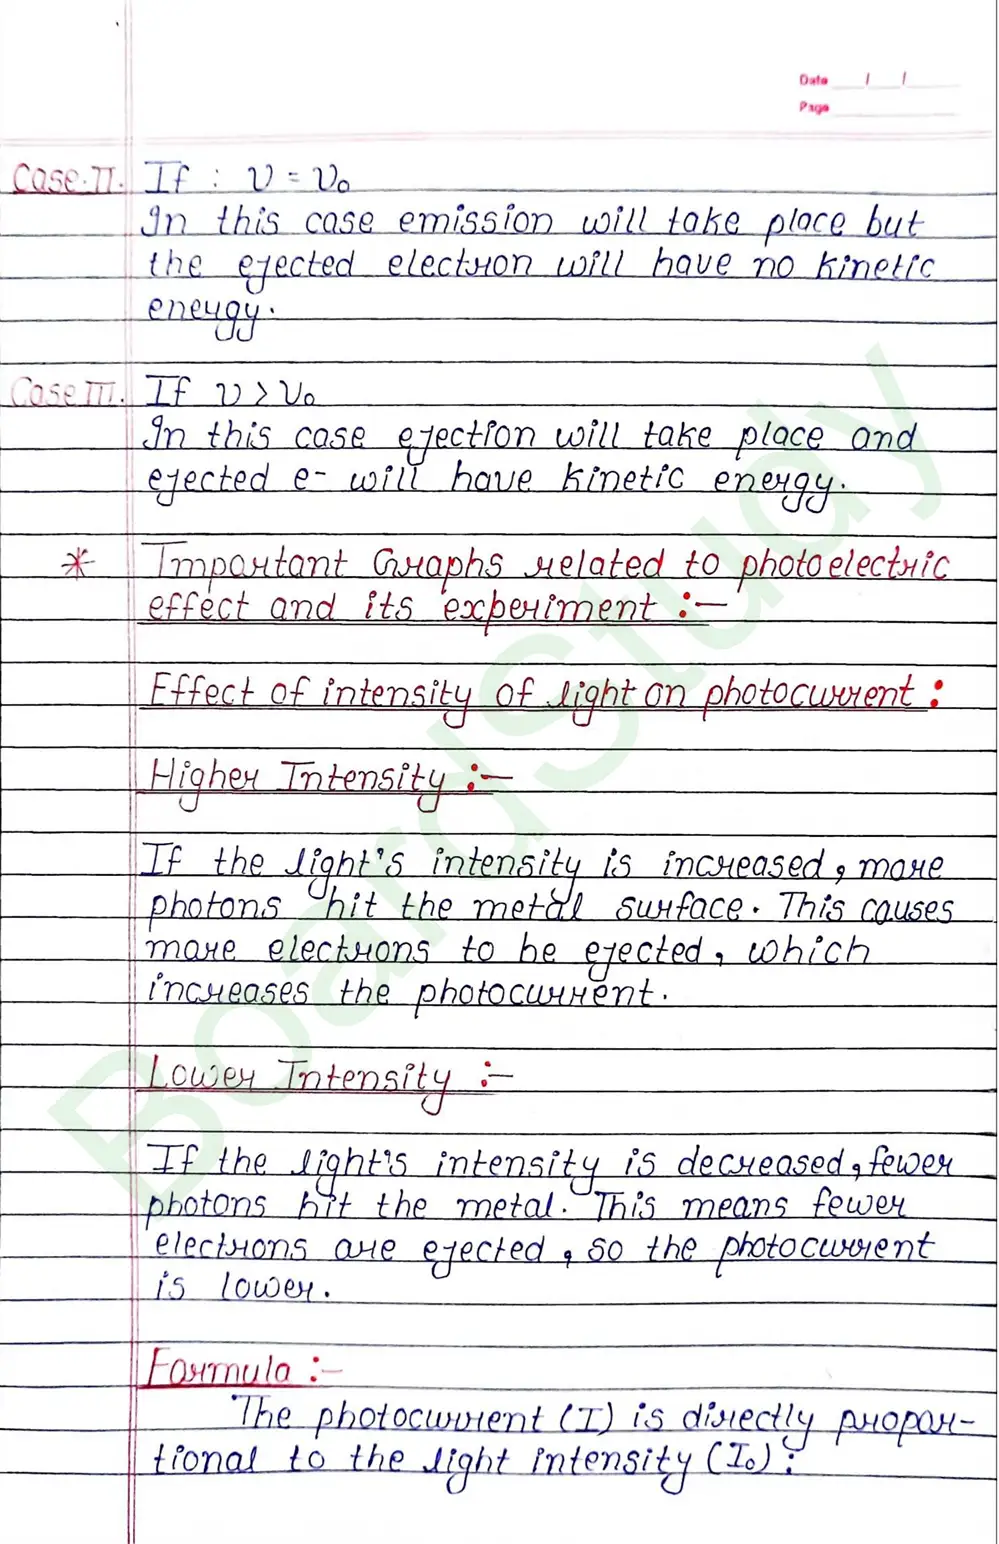 Date / /
Page
Case.II. If : ν = ν₀
In this case emission will take place but
the ejected electron will have no kinetic
energy.
Case III. If ν > ν₀
In this case ejection will take place and
ejected e- will have kinetic energy.
* Important Graphs related to photoelectric
effect and its experiment :-
Effect of intensity of light on photocurrent :
Higher Intensity :-
If the light's intensity is increased, more
photons hit the metal surface. This causes
more electrons to be ejected, which
increases the photocurrent.
Lower Intensity :-
If the light's intensity is decreased, fewer
photons hit the metal. This means fewer
electrons are ejected, so the photocurrent
is lower.
Formula :-
The photocurrent (I) is directly propor-
tional to the light intensity (I₀) :
BoardStudy